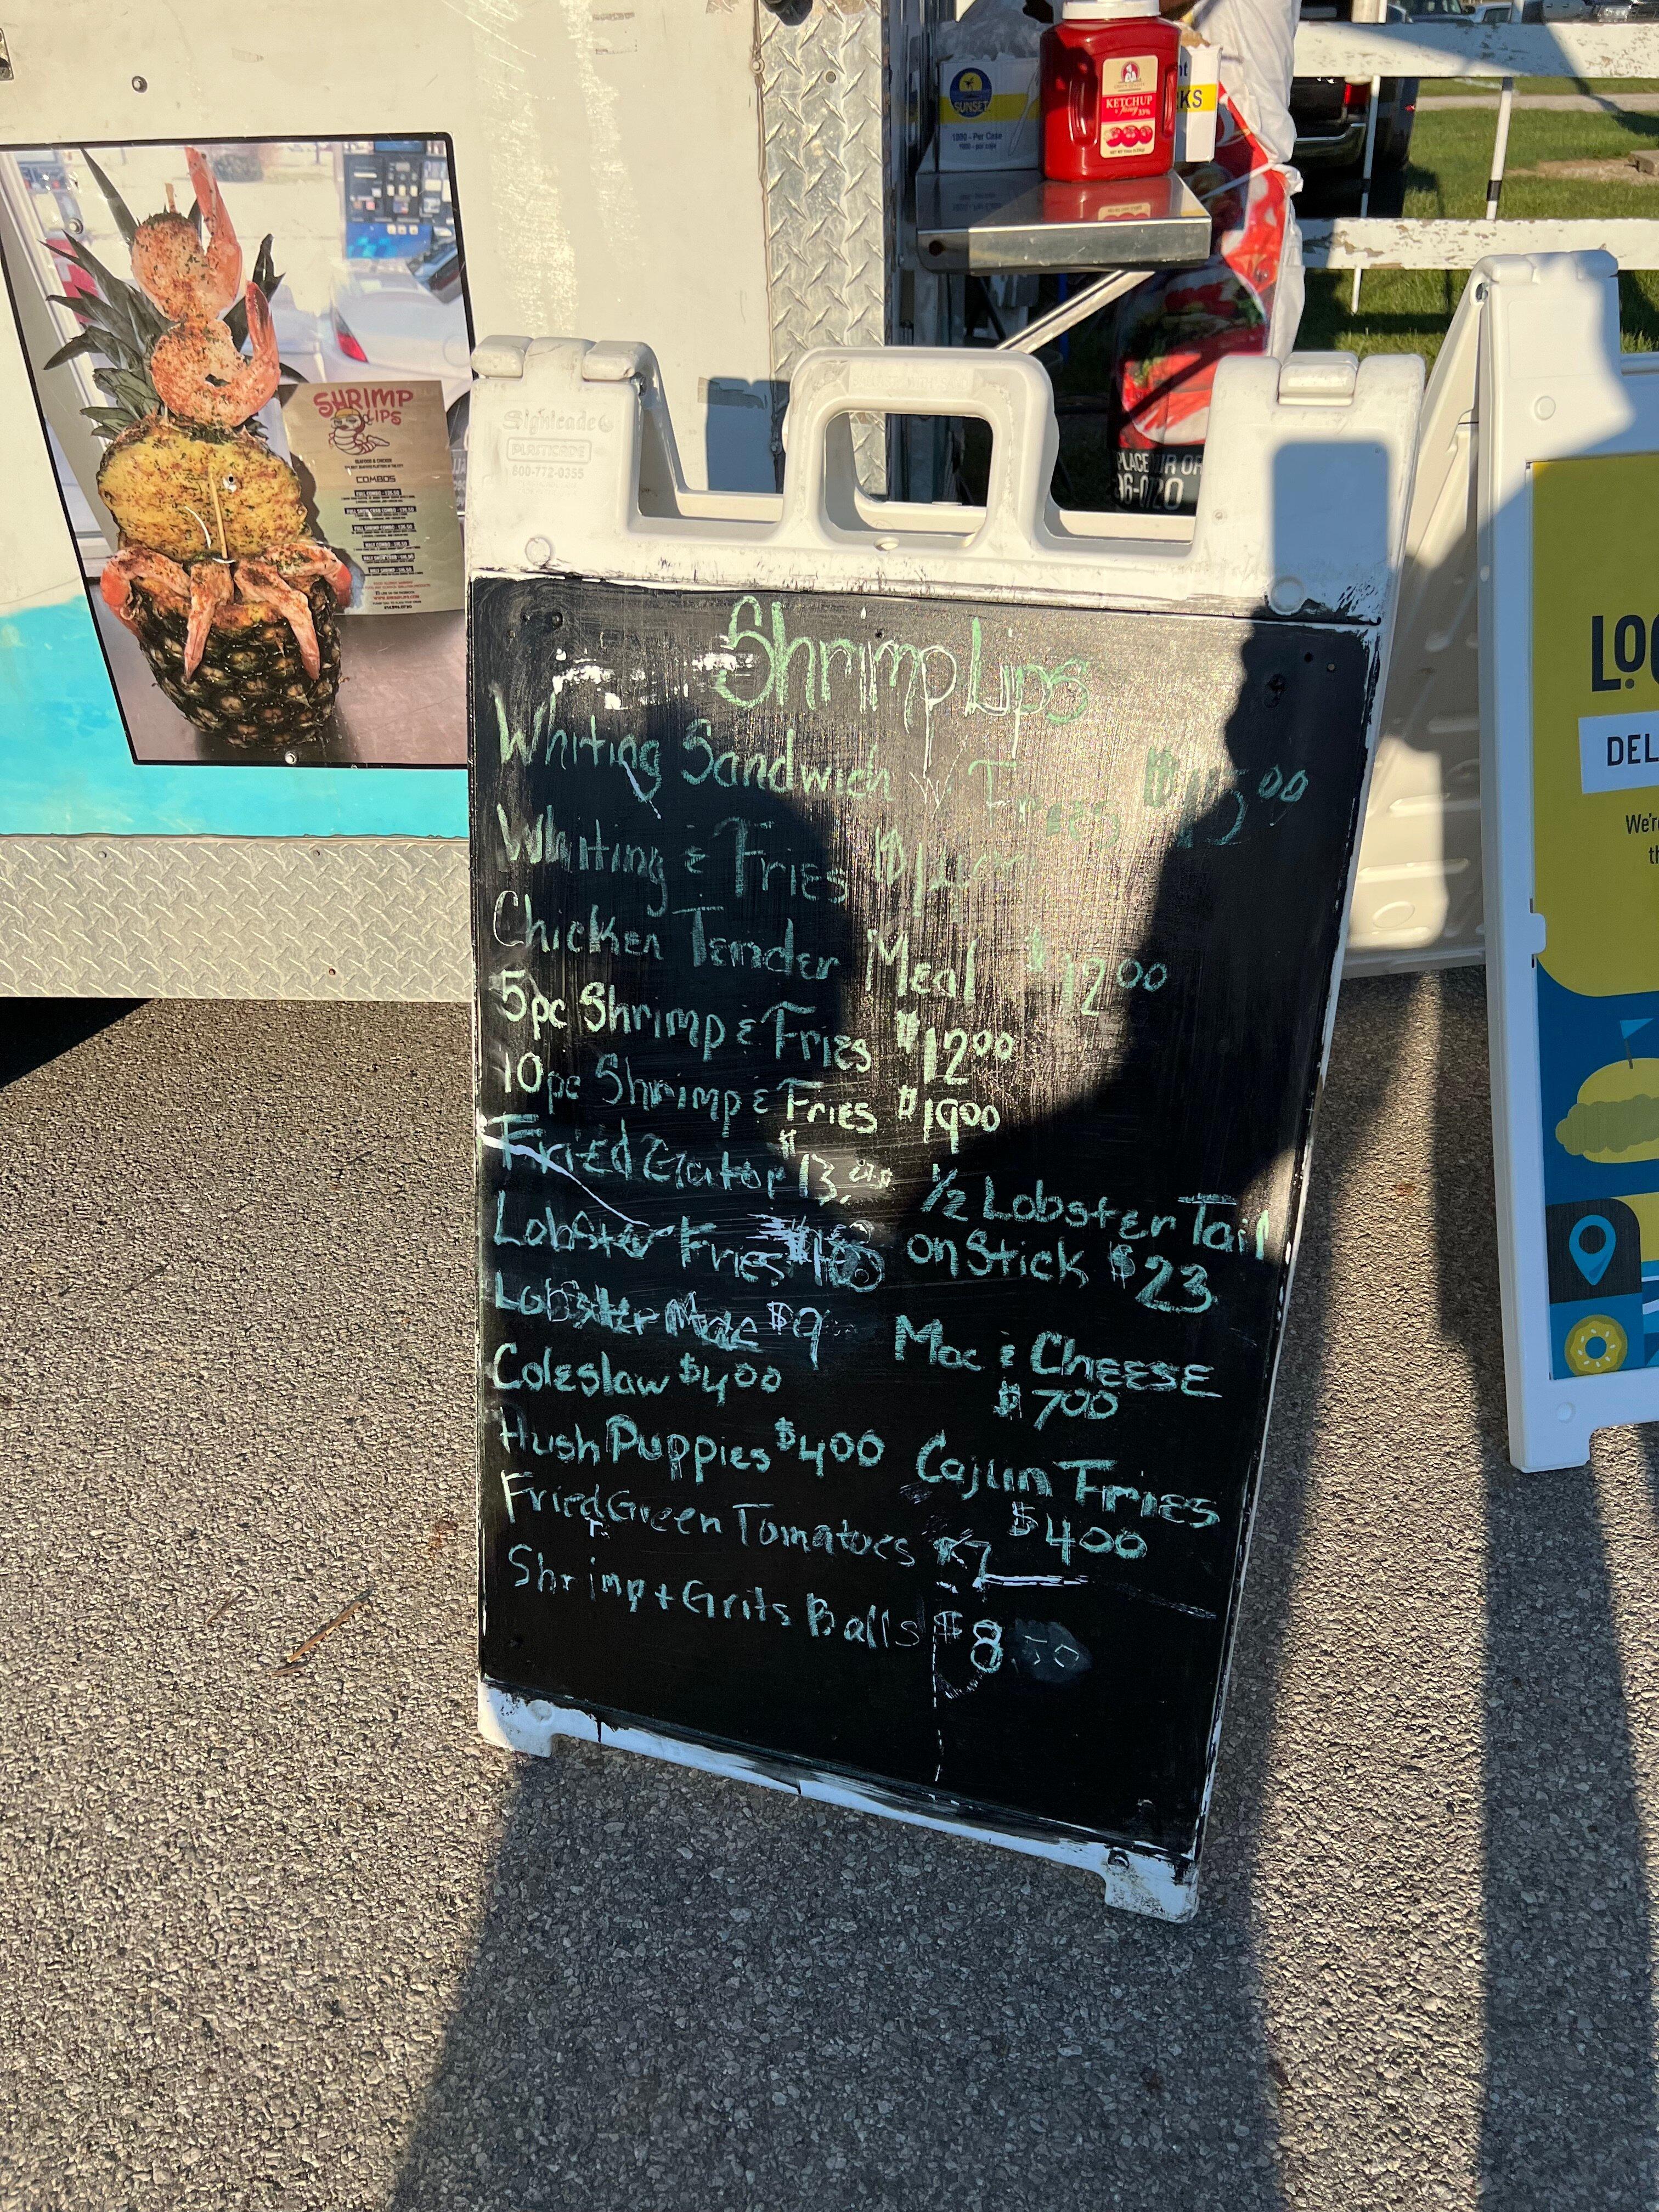 SUNSET
1000 - Per Case
KETCHUP
33%
KS
SHRIMP
LIPS
SEAFOOD & CHICKEN
COMBOS
Signicade
PLASTICADE
800-772-0355
96-0120
Shrimp Lips
Whiting Sandwich w Fries $15.00
Whiting & Fries
Chicken Tender Meal $12.00
5pc Shrimp & Fries $12.00
10pc Shrimp & Fries $19.00
Fried Gator $13.
1/2 Lobster Tail
on Stick $23
Lobster Fries
Lobster Mac $9
Mac & CHEESE
$7.00
Coleslaw $4.00
Hush Puppies $4.00
Cajun Fries
$4.00
Fried Green Tomatoes $7
Shrimp + Grits Balls $8
LOC
DEL
We're
th